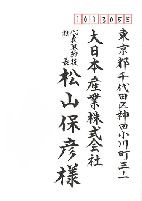 1013055
東京都千代田区神田小川町五ノ一
大日本産業株式会社
代表取締役
社長
松山保彦様